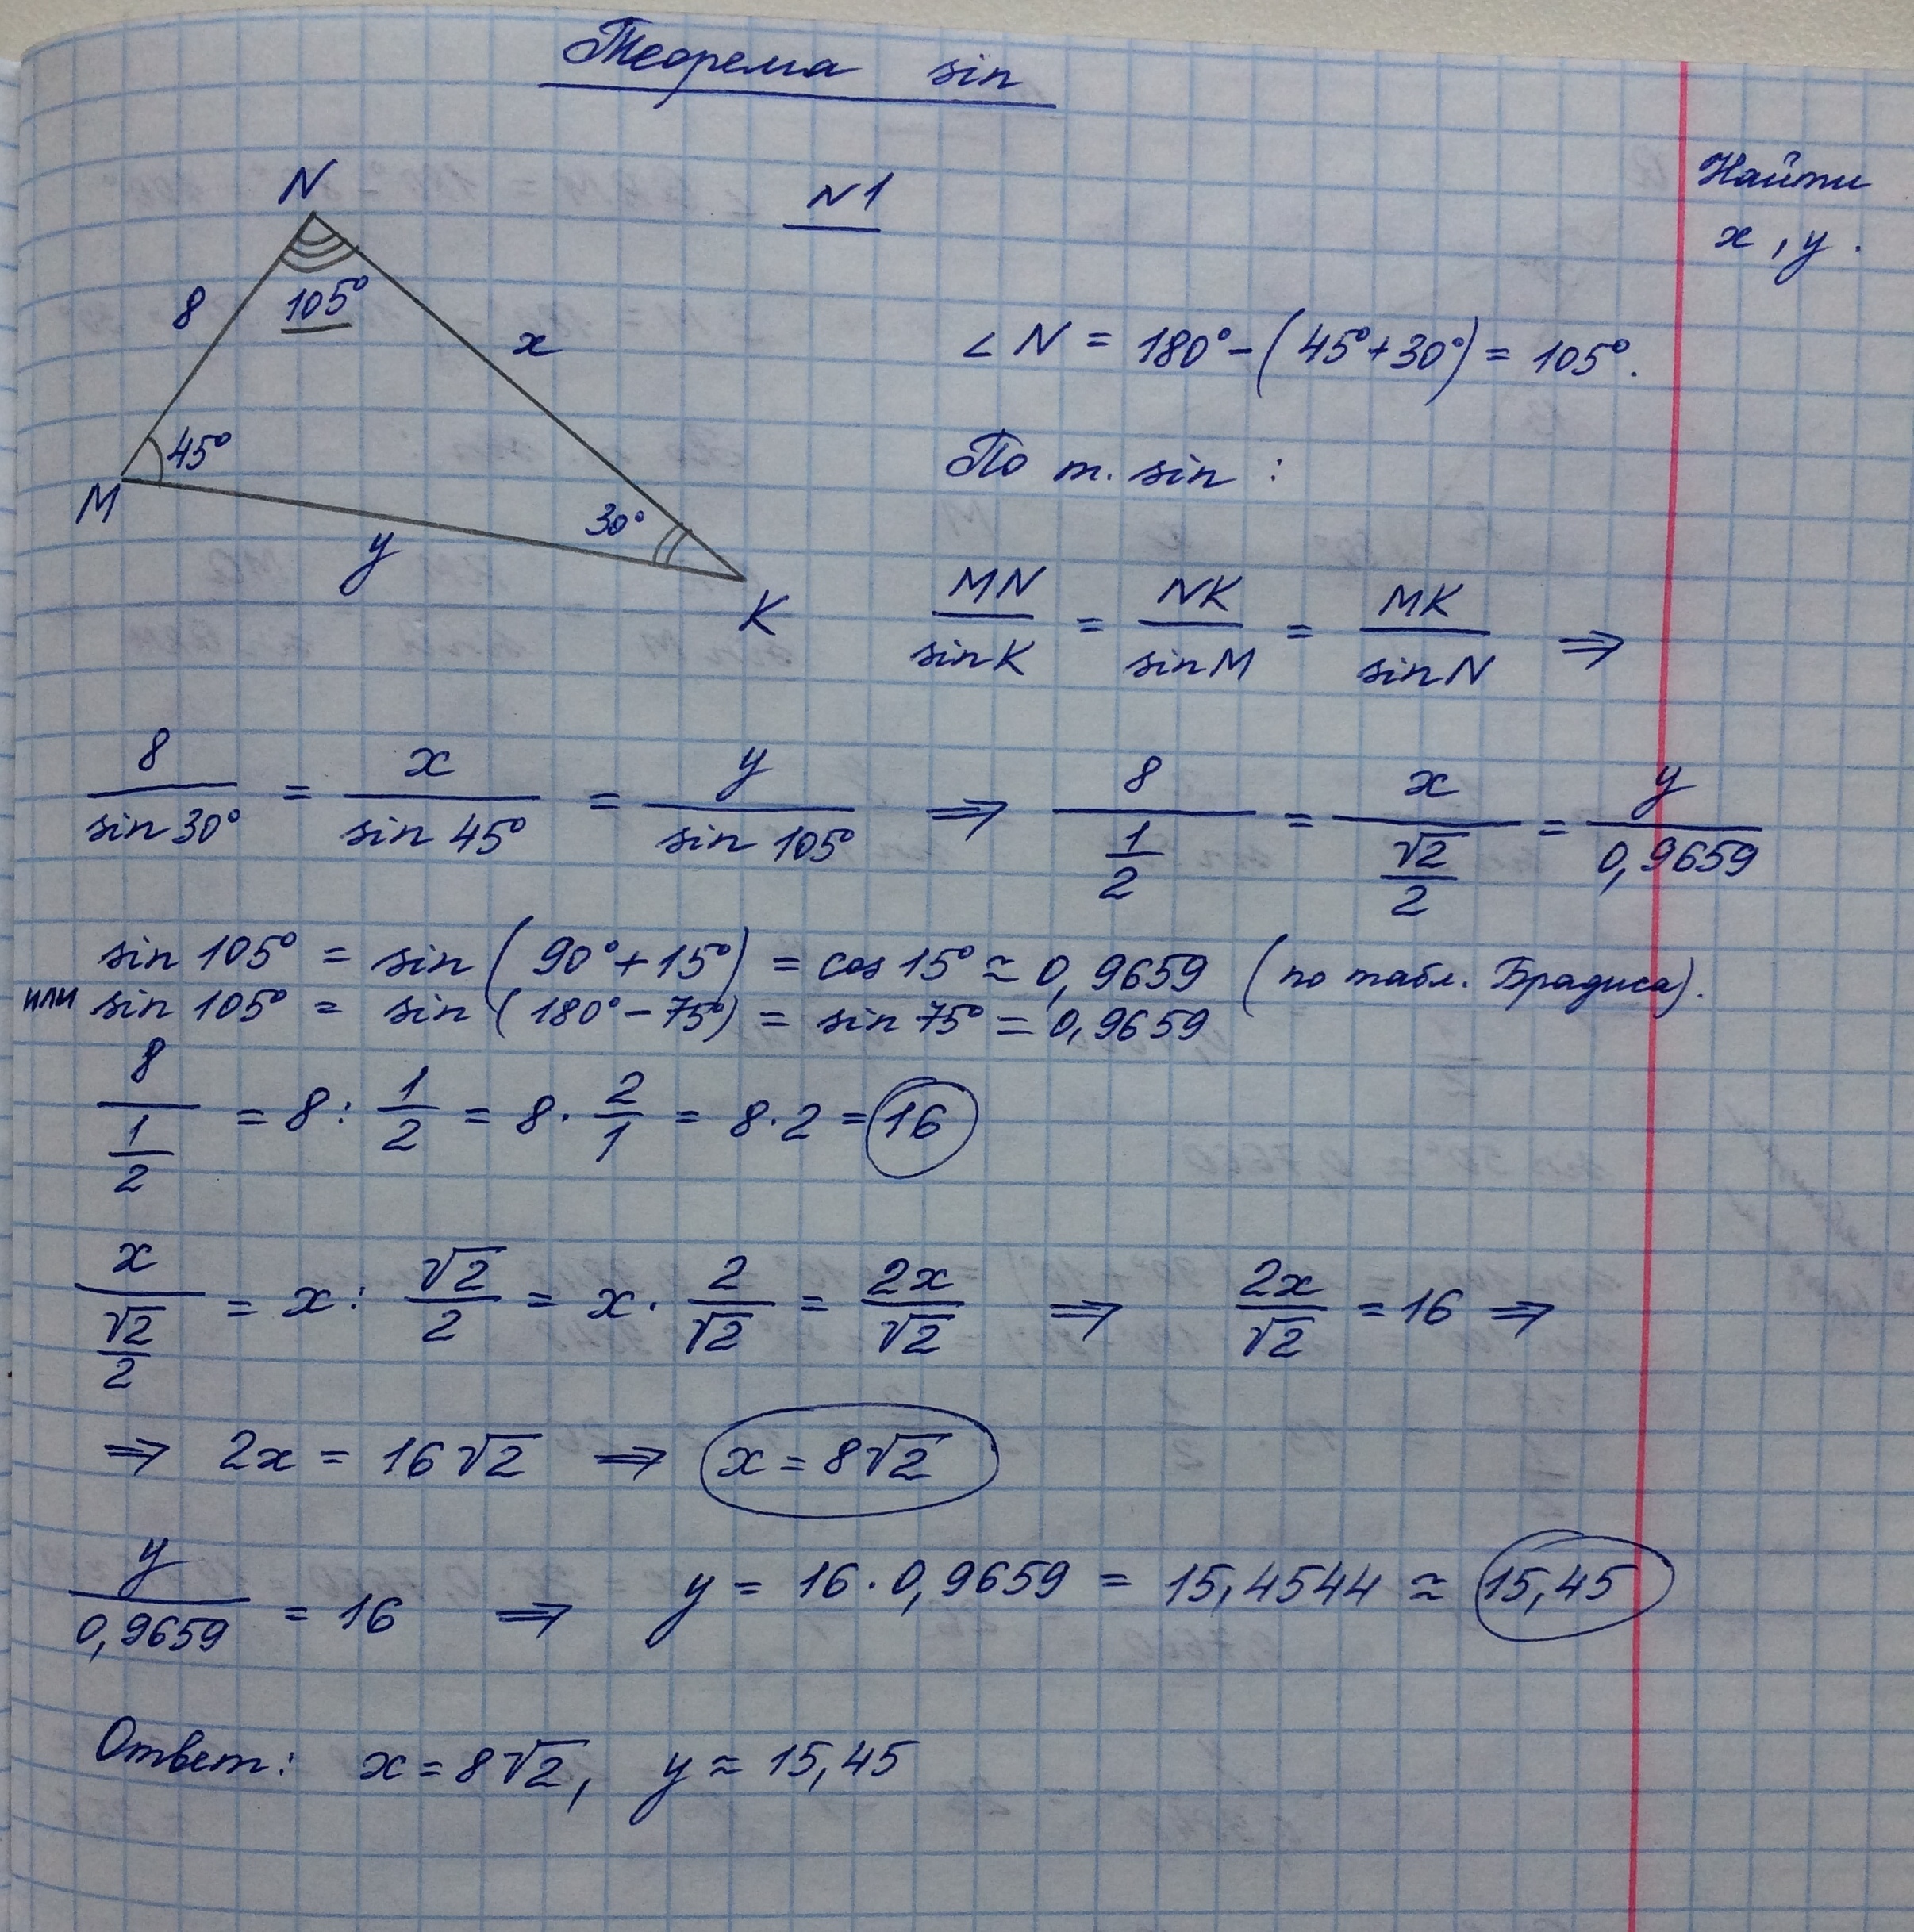 Теорема sin
N1
Найти
x, y.
N
8
105°
x
45°
M
30°
y
K
∠N = 180° - (45° + 30°) = 105°.
По т. sin :
MN/sinK = NK/sinM = MK/sinN ⇒
8/sin 30° = x/sin 45° = y/sin 105° ⇒ 8/(1/2) = x/(√2/2) = y/0,9659
sin 105° = sin (90° + 15°) = cos 15° ≈ 0,9659 (по табл. Брадиса).
или sin 105° = sin (180° - 75°) = sin 75° = 0,9659
8/(1/2) = 8 : 1/2 = 8 · 2/1 = 8 · 2 = 16
x/(√2/2) = x : √2/2 = x · 2/√2 = 2x/√2 ⇒ 2x/√2 = 16 ⇒
⇒ 2x = 16√2 ⇒ x = 8√2
y/0,9659 = 16 ⇒ y = 16 · 0,9659 = 15,4544 ≈ 15,45
Ответ: x = 8√2, y ≈ 15,45